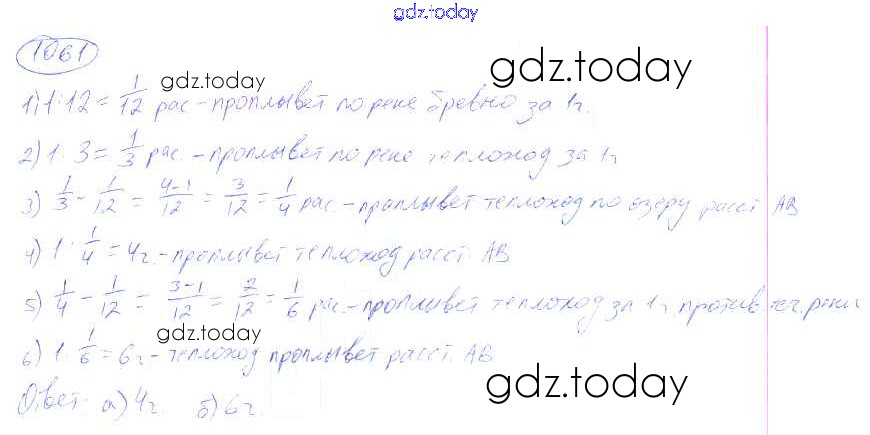 gdz.today
1061
gdz.today
gdz.today
1) 1:12 = 1/12 рас - проплывет по реке бревно за 1ч.
2) 1:3 = 1/3 рас. - проплывет по реке теплоход за 1ч
3) 1/3 - 1/12 = 4-1/12 = 3/12 = 1/4 рас - проплывет теплоход по озеру расст AB
4) 1:1/4 = 4ч. - проплывет теплоход расст. AB
5) 1/4 - 1/12 = 3-1/12 = 2/12 = 1/6 рас. - проплывет теплоход за 1ч против теч. реки
gdz.today
6) 1:1/6 = 6ч - теплоход проплывет расст. AB
gdz.today
Ответ: а) 4ч. б) 6ч.